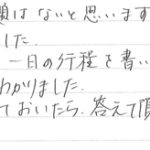 題はないと思います
した.
一日の行程を書い
わかりました.
ておいたら. 答えて頂